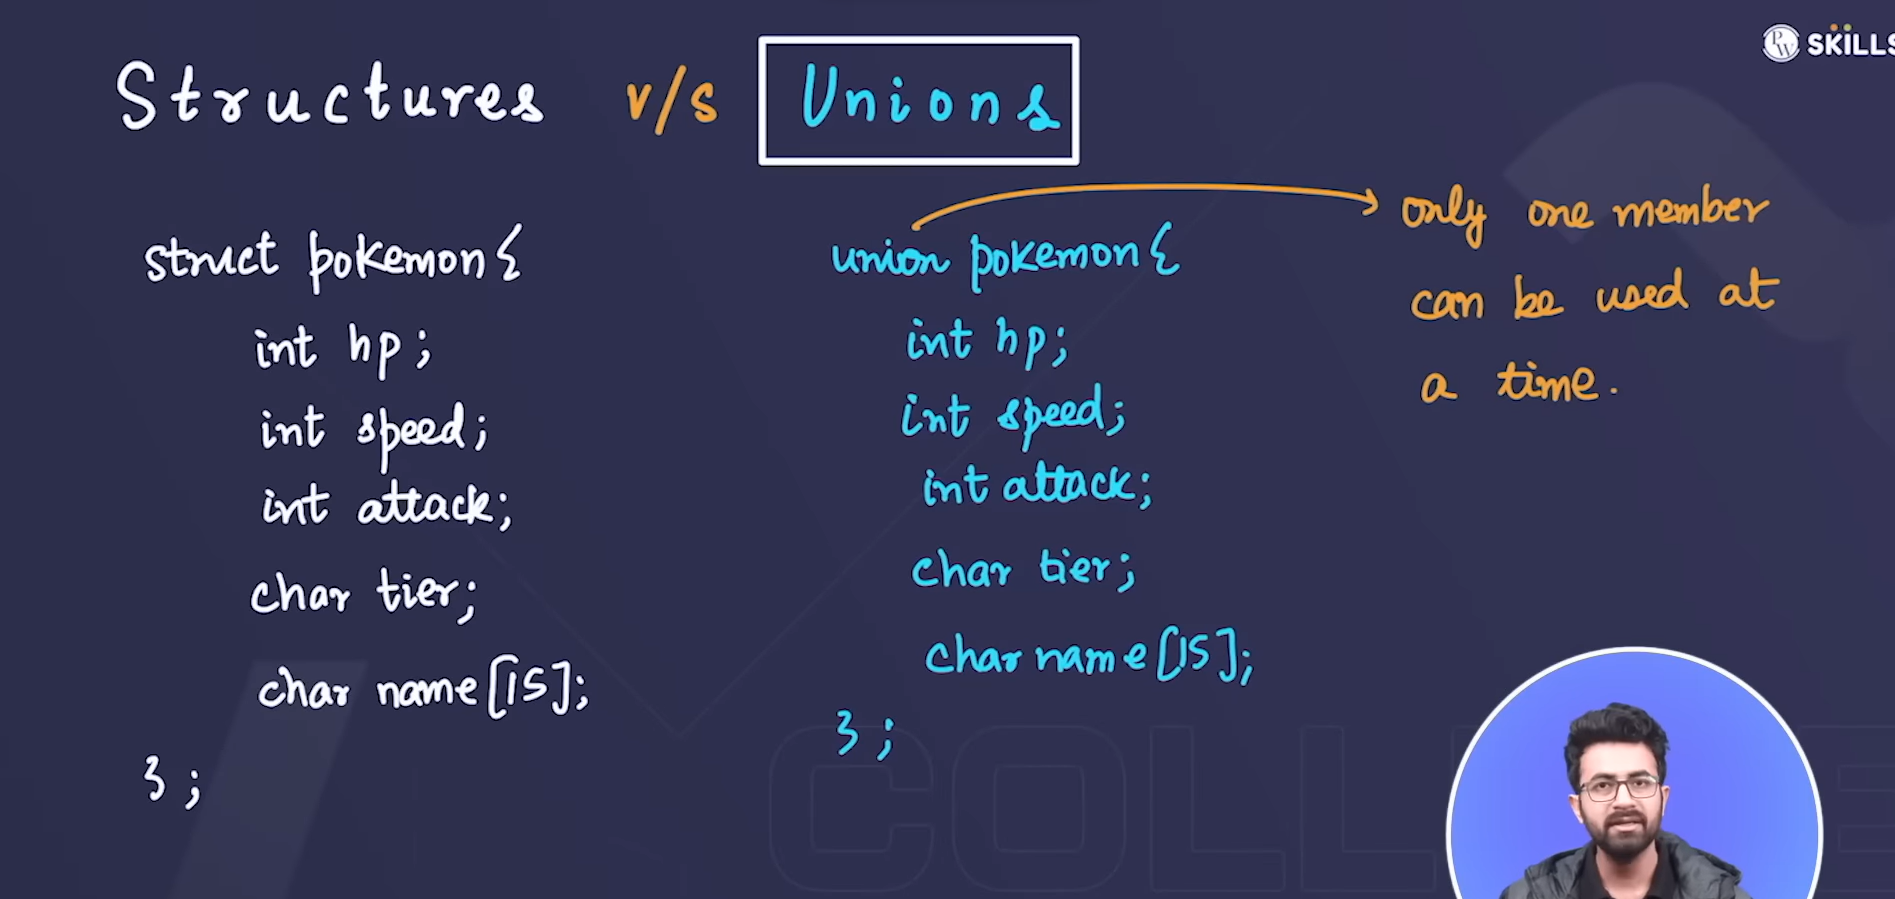 Structures v/s Unions
PW SKILLS
struct pokemon {
int hp;
int speed;
int attack;
char tier;
char name[15];
};
union pokemon {
int hp;
int speed;
int attack;
char tier;
char name[15];
};
only one member
can be used at
a time.
COLL E